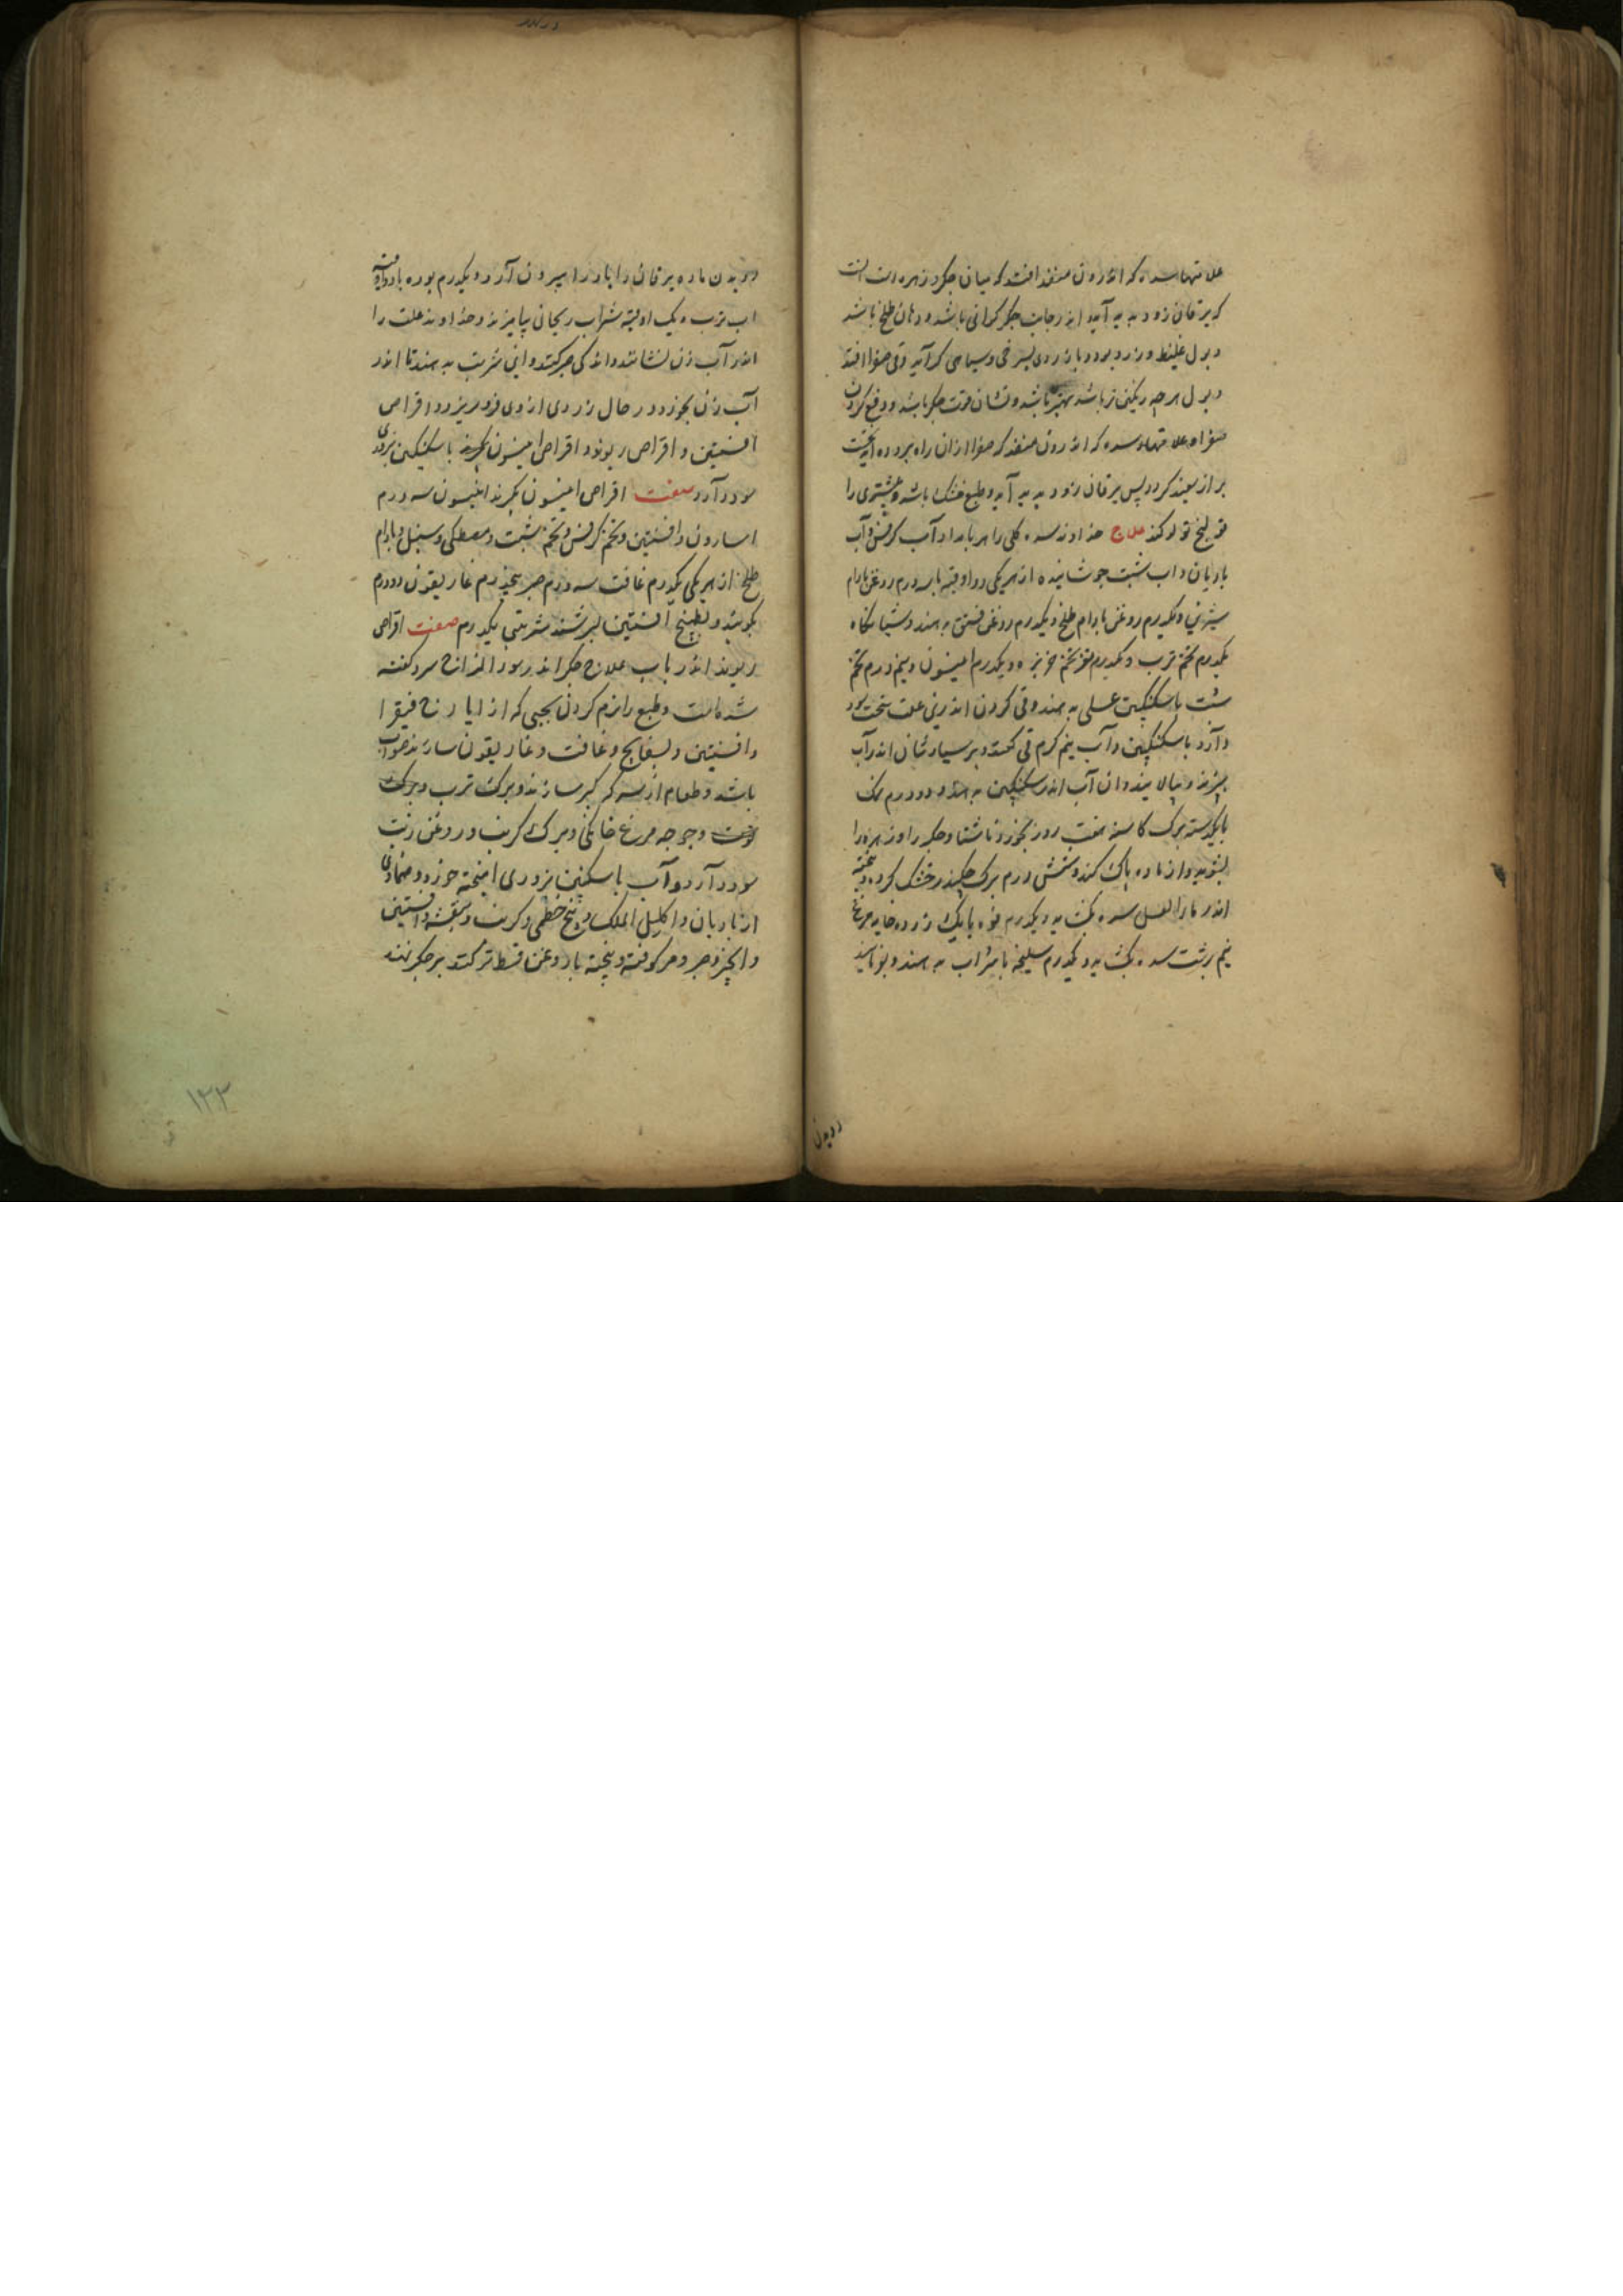 علامتهاء سده که اندرون منفذ افتد که میان جگر و زهره است انست
که یرقان زود پدید آید و اندر جانب جگر گرانی باشد و دهان طلخ باشد
و بول غلیظ و زرد بود و باز زردی بسرخی و سیاهی گراید وقی صفرا افتد
و بول هرچه رنگین تر باشد بهتر باشد و نشان قوت جگر باشد و دفع کردن
صفرا و علامتهاء سده که اندرون منفذ که صفرا ازان راه بروده آید انست
براز سپید گردد پس یرقان زود پدید آید و طبع خشک باشد و بیشتری را
قولنج تولد کند علاج خداوند سده کلی را هر بامداد آب کرفس و آب
بادیان و اب شبت جوشانیده از هر یکی دو اوقیه با سه درم روغن بادام
شیرین و یکدرم روغن بادام طلخ و یکدرم روغن فستق بدهند و شبانگاه
یکدرم تخم ترب و یکدرم مغز تخم خربزه و یکدرم انیسون و نیم درم تخم
شبت با سکنکبین عسلی بدهند وقی کردن اندرین علت سخت سود
دارد با سکنکبین و آب نیم گرم قی کنند و پرسیاوشان اندر آب
بپزند و بپالایند و ان آب اندر سکنکبین بدهند و دو درم نمک
با یکدسته برگ کاسنه هفت روز بخورد ناشتا و جگر را و زهره را
بشوید و از ماده پاک کند و شش درم برگ چکندر خشک کرده و پخته
اندر ماء العسل سده بگشاید و یکدرم فوه با یک زرده خایه مرغ
نیم برشت سده بگشاید و یکدرم سلیخه با شراب بدهند و بوناسید
درون
در بدن ماده یرقان را بادرار بیرون آرد و یکدرم بوره با دو اوقیه
اب ترب و یک اوقیه شراب ریحانی بیامیزند و خداوند علت را
اندر آب زن نشانند و اندکی صبر کنند و این شربت بدهند تا اندر
آب زن بخورد در حال زردی از وی فرو ریزد و اقراص
افسنتین و اقراص ریوند و اقراص انیسون بگیرند با سکنکبین بزوری
سود دارد صفت اقراص انیسون بگیرند انیسون سه درم
اسارون و افسنتین و تخم کرفس و تخم شبت و مصطکی و سنبل و بادام
طلخ از هر یکی یکدرم غافت سه درم صبر پنجدرم غاریقون دو درم
بکوبند و بطبیخ افسنتین بسرشند شربتی یکدرم صفت اقراص
ریوند اندر باب علاج جگر اندر سوء المزاج سرد گفته
شده است و طبع را نرم کردن بحبی که از ایارج فیقرا
و افسنتین و بسفایج و غافت و غاریقون سازند صواب
باشد و طعام از سرکه کبر سازند و برگ ترب و برگ
توت و جوجه مرغ خانگی و برگ کرنب و روغن زیت
سود دارد و آب با سکنکبین بزوری امیخته خورد و ضمادی
از بادیان و اکلیل الملک و بیخ خطمی و کرنب و بنفشه و افسنتین
و انجیر و صبر و مر کوفته و پخته با روغن قسط تر کنند بر جگر نهند
۱۳۳